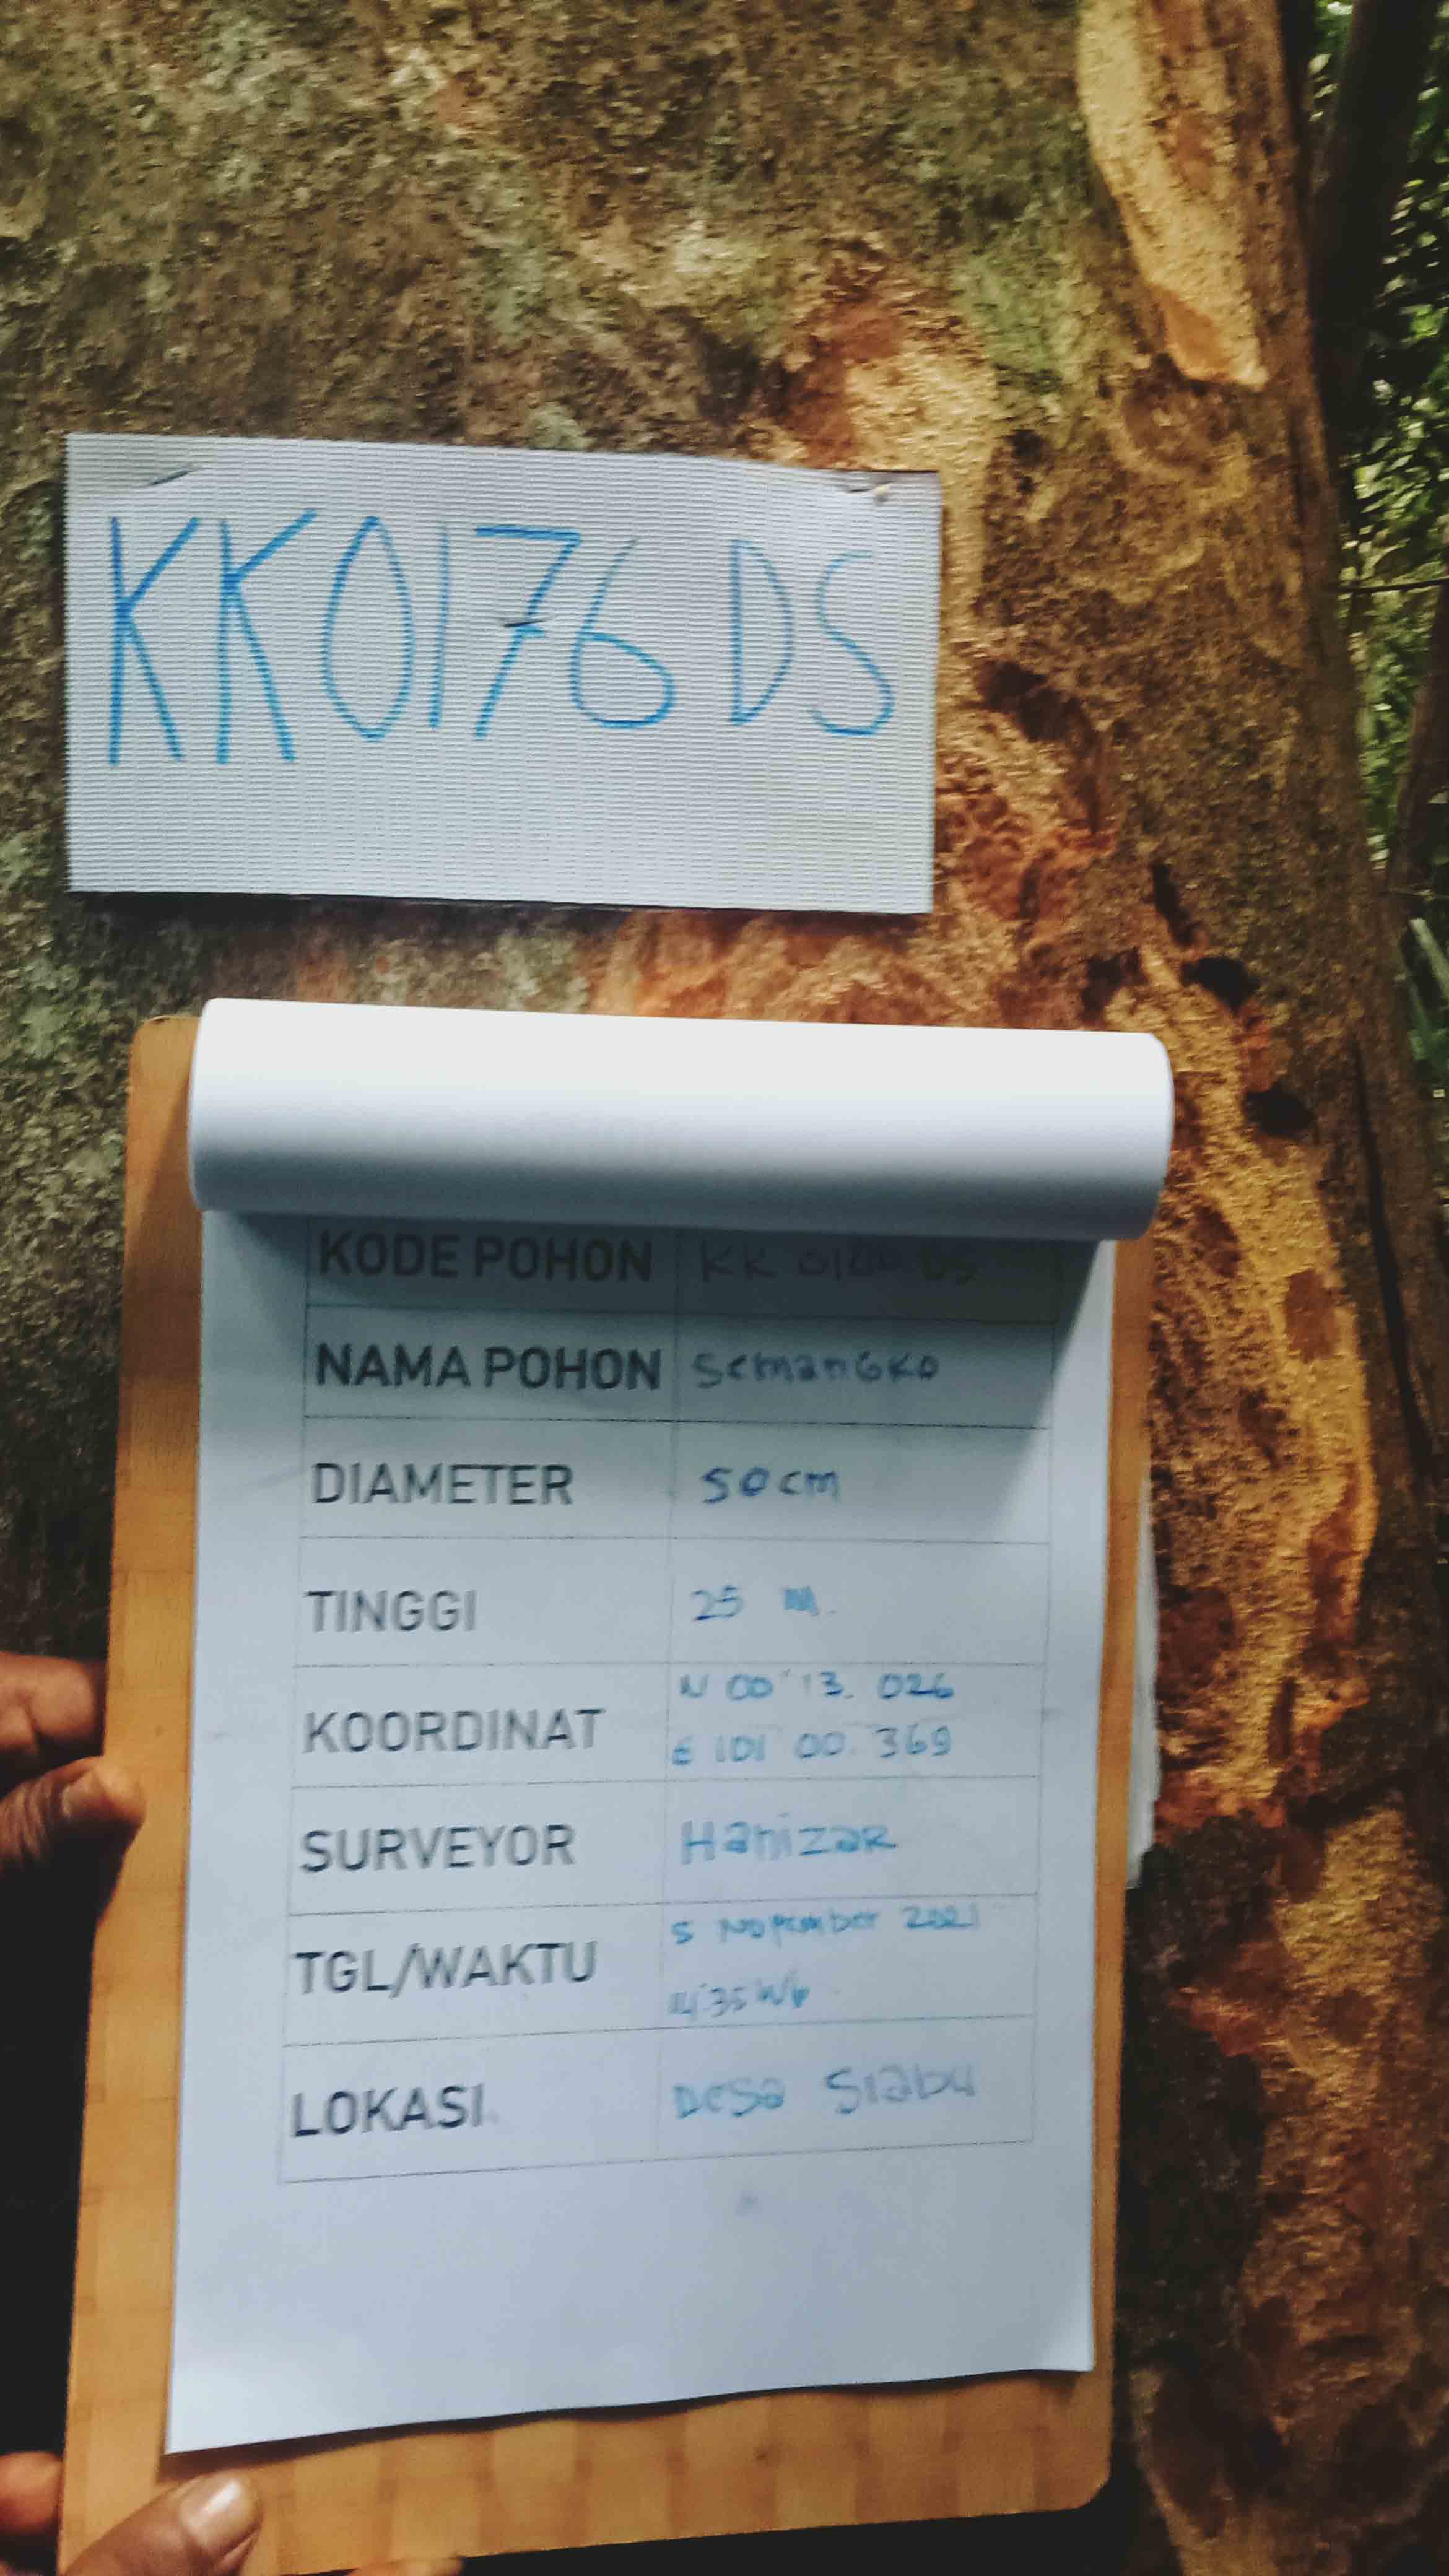 KK0176 DS
KODE POHON KK
NAMA POHON SemanGKO
DIAMETER 50 cm
TINGGI 25 M.
KOORDINAT N 00° 13. 026
E 101 00. 369
SURVEYOR Hanizar
TGL/WAKTU 5 November 2021
14:35 Wib
LOKASI Desa Siabu